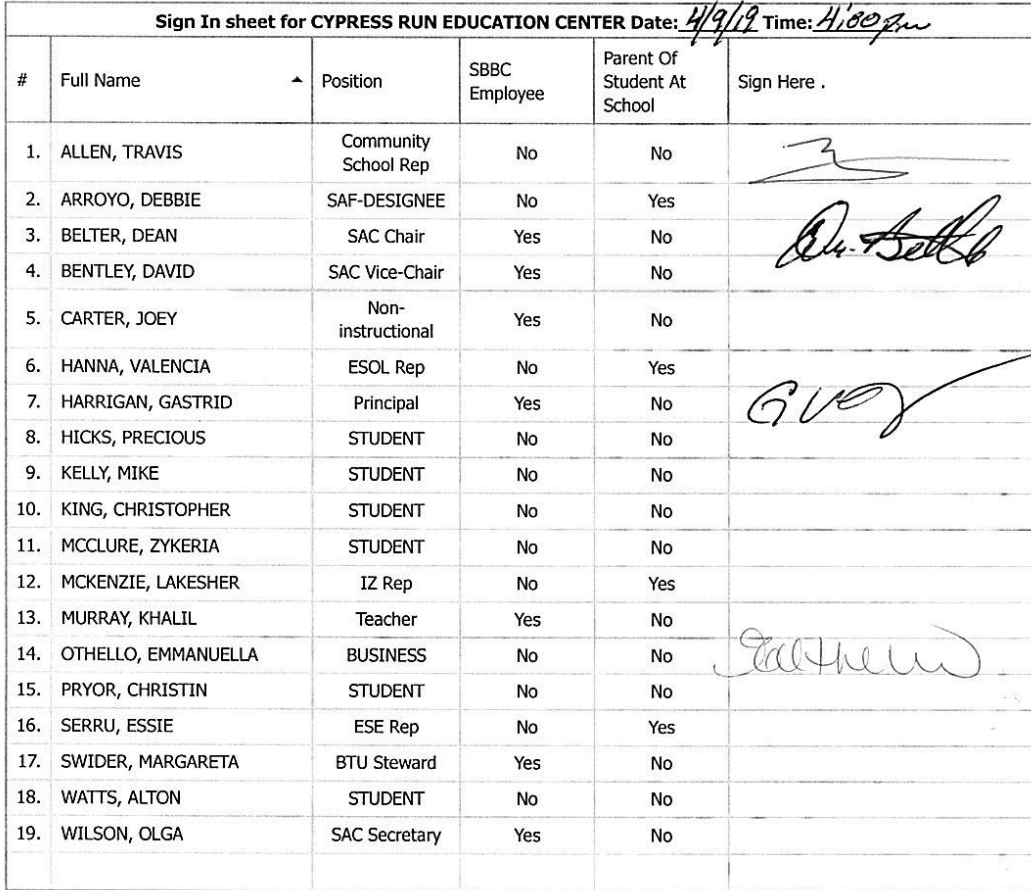 Sign In sheet for CYPRESS RUN EDUCATION CENTER Date: 4/9/19 Time: 4:00 pm
# Full Name Position SBBC Employee Parent Of Student At School Sign Here .
1. ALLEN, TRAVIS Community School Rep No No
2. ARROYO, DEBBIE SAF-DESIGNEE No Yes
3. BELTER, DEAN SAC Chair Yes No
4. BENTLEY, DAVID SAC Vice-Chair Yes No
5. CARTER, JOEY Non-instructional Yes No
6. HANNA, VALENCIA ESOL Rep No Yes
7. HARRIGAN, GASTRID Principal Yes No
8. HICKS, PRECIOUS STUDENT No No
9. KELLY, MIKE STUDENT No No
10. KING, CHRISTOPHER STUDENT No No
11. MCCLURE, ZYKERIA STUDENT No No
12. MCKENZIE, LAKESHER IZ Rep No Yes
13. MURRAY, KHALIL Teacher Yes No
14. OTHELLO, EMMANUELLA BUSINESS No No
15. PRYOR, CHRISTIN STUDENT No No
16. SERRU, ESSIE ESE Rep No Yes
17. SWIDER, MARGARETA BTU Steward Yes No
18. WATTS, ALTON STUDENT No No
19. WILSON, OLGA SAC Secretary Yes No